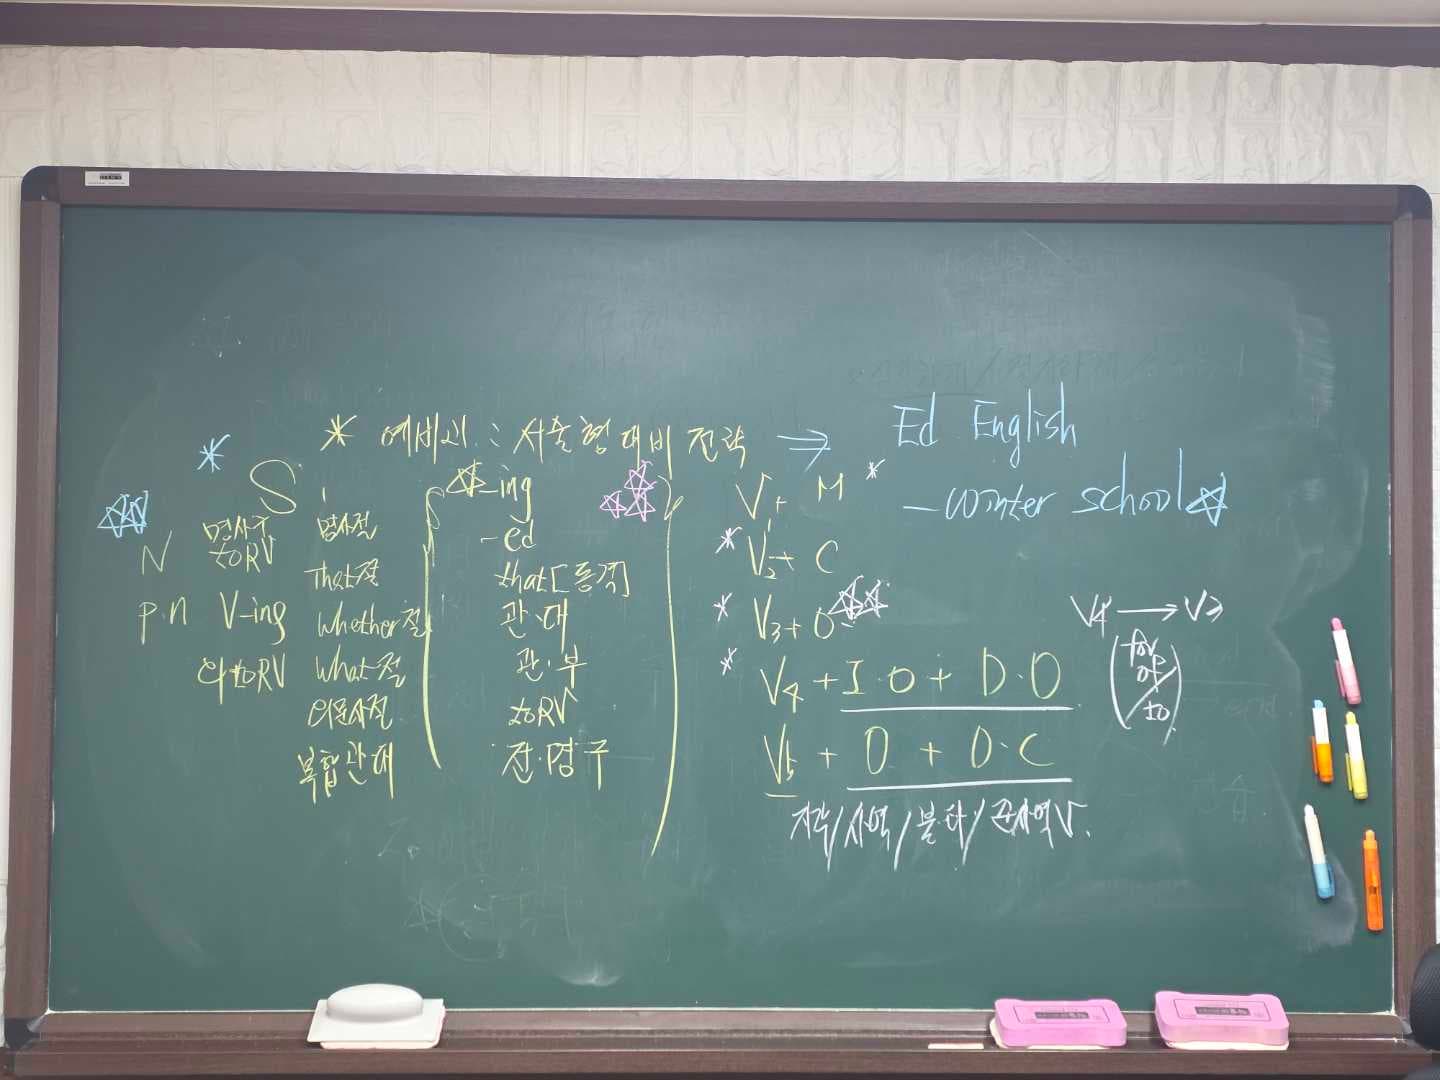 * 예비고 : 서술형 대비 전략 ⇒ Ed English
- Winter school ☆
* S
N
p.n
명사구
toRV
V-ing
의 toRV
명사절
That절
Whether절
What절
의문사절
복합관대
☆ -ing
-ed
that[동격]
관·대
관·부
toRV
전·명구
V₁ + M *
* V₂ + C
* V₃ + O
* V₄ + I·O + D·O
V₅ + O + O·C
지각/사역/불·타/준사역V.
V4 → V3
(for
of
/to)